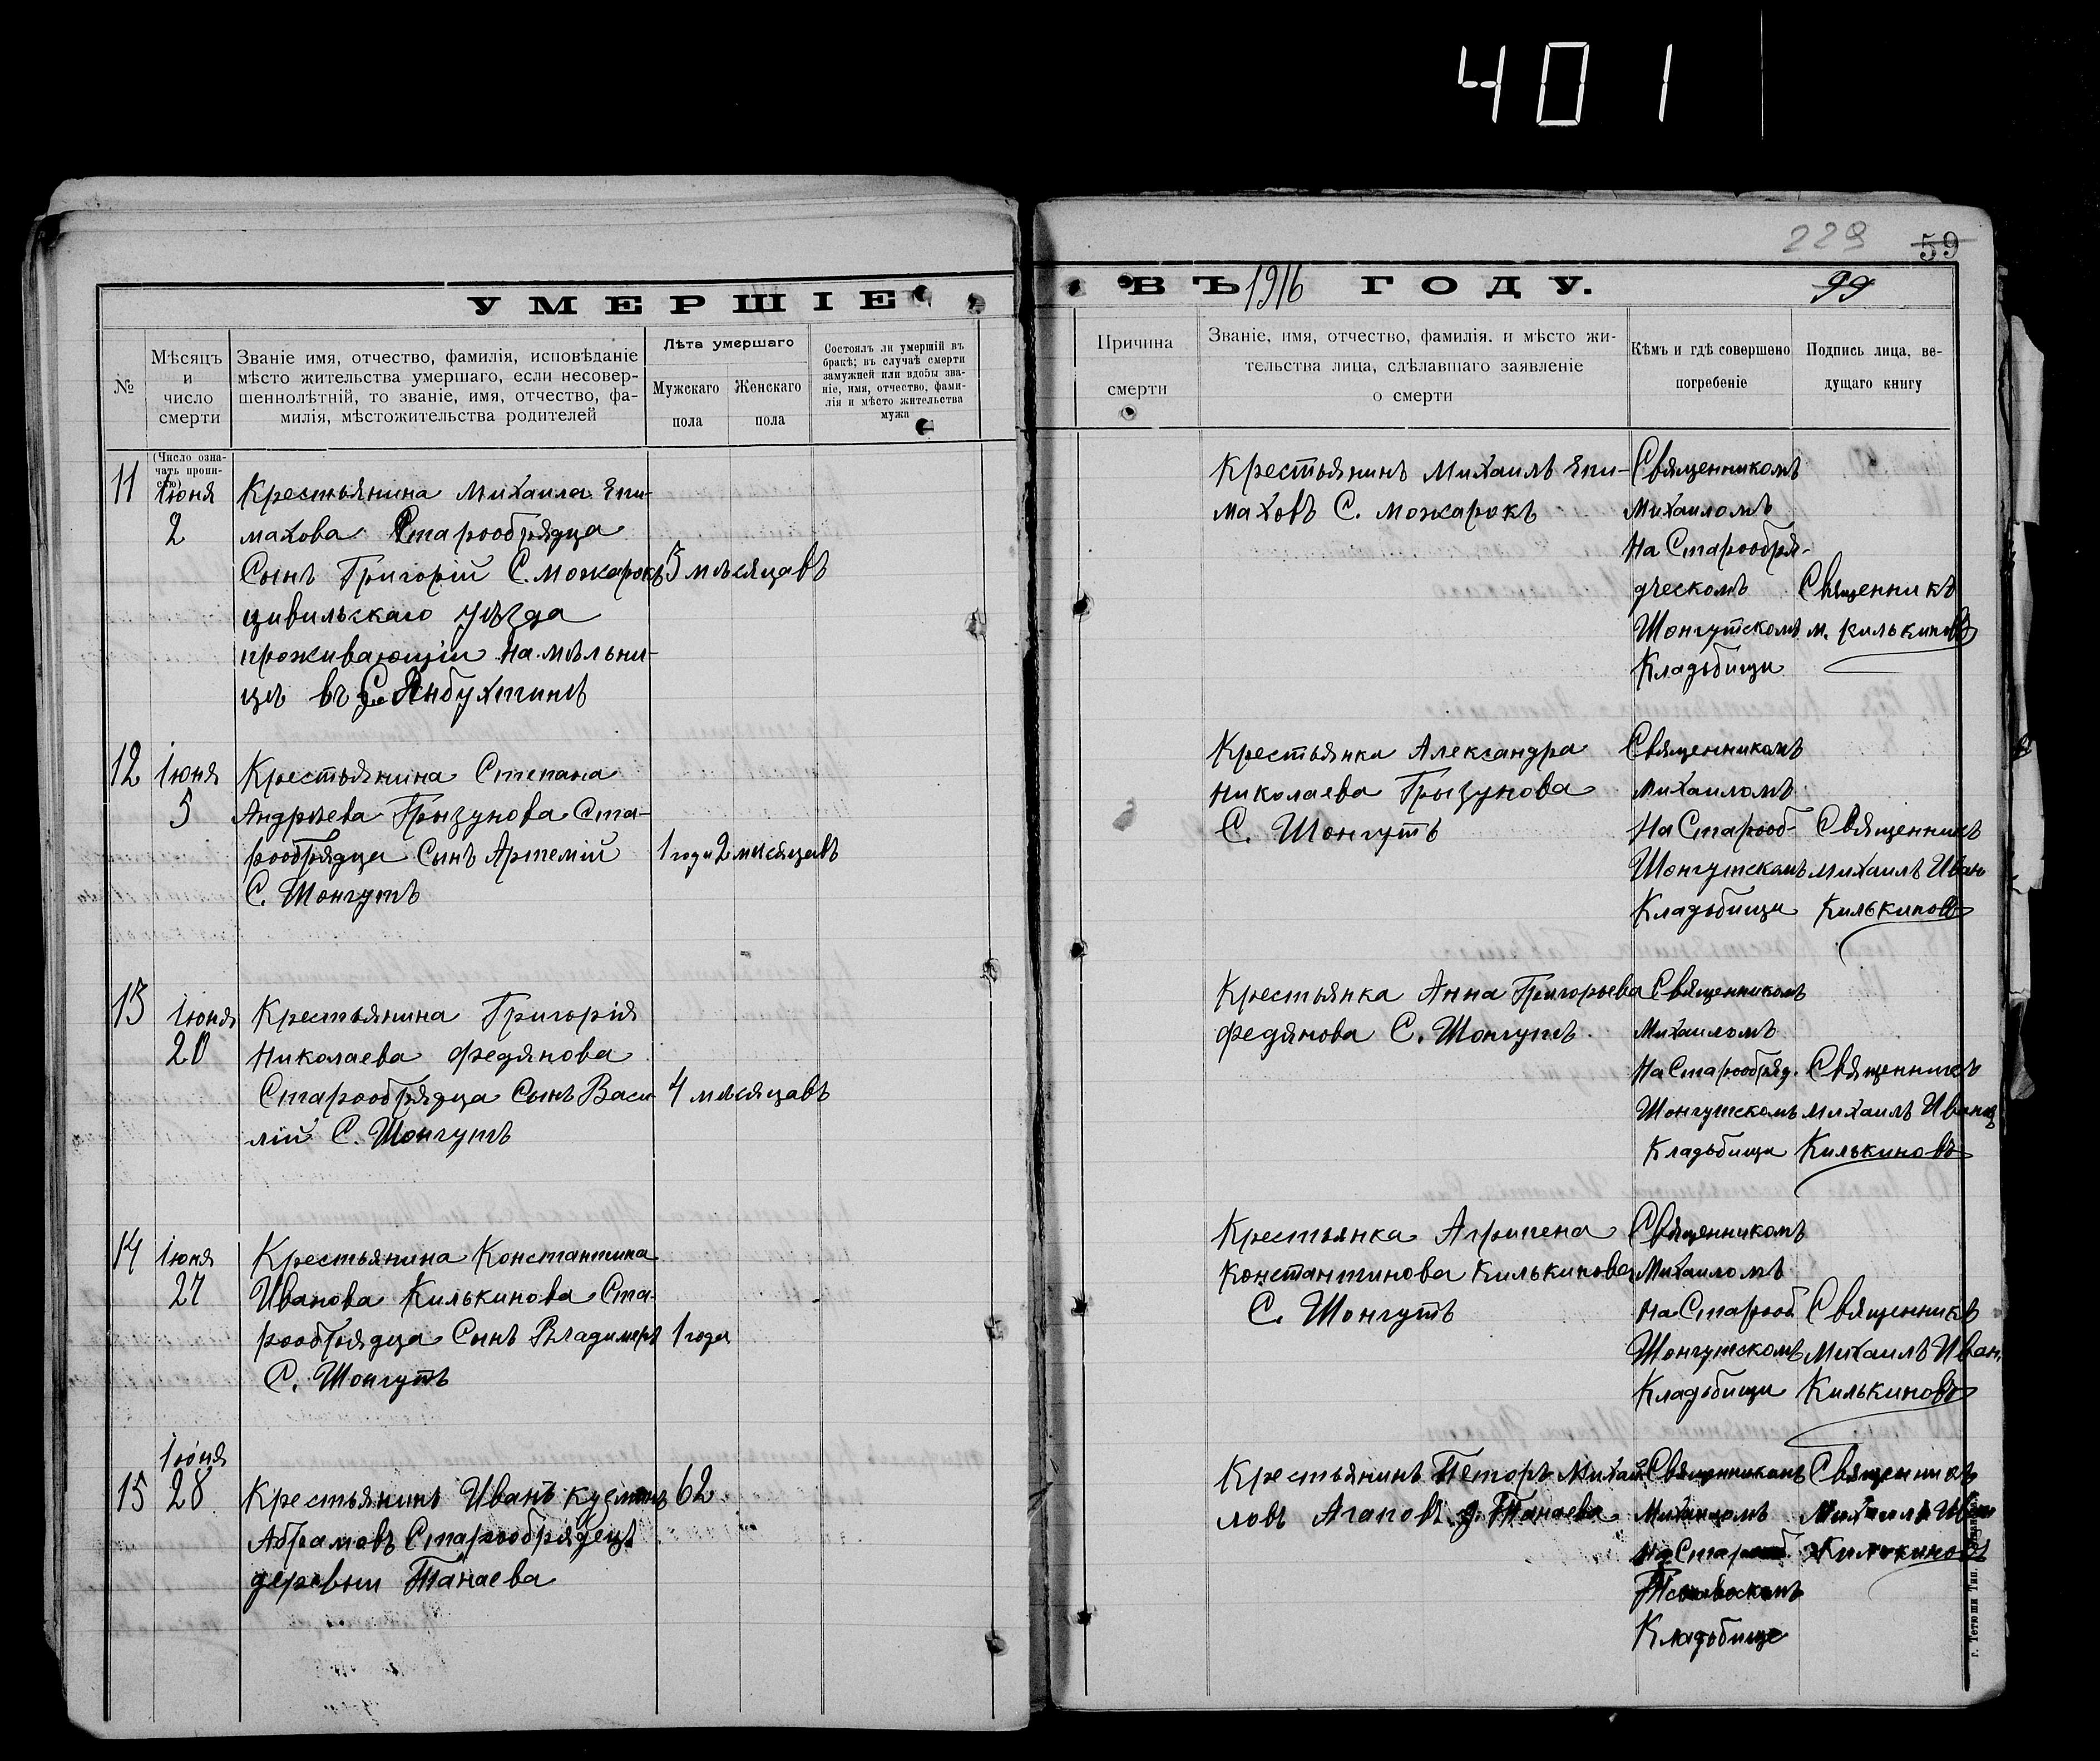 401
229
59
УМЕРШІЕ
ВЪ 1916 ГОДУ.
99
№
Мѣсяцъ
и
число
смерти
Званіе имя, отчество, фамилія, исповѣданіе
мѣсто жительства умершаго, если несовер-
шеннолѣтній, то званіе, имя, отчество, фа-
милія, мѣстожительства родителей
Лѣта умершаго
Мужскаго
пола
Женскаго
пола
Состоялъ ли умершій въ
бракѣ; въ случаѣ смерти
замужней или вдовы зва-
ніе, имя, отчество, фами-
лія и мѣсто жительства
мужа
Причина
смерти
Званіе, имя, отчество, фамилія, и мѣсто жи-
тельства лица, сдѣлавшаго заявленіе
о смерти
Кѣмъ и гдѣ совершено
погребеніе
Подпись лица, ве-
дущаго книгу
(Число озна-
чать пропи-
сью)
11
Іюня
2
Крестьянина Михаила Епи-
махова Старообрядца
Сынъ Григорій С. Можарокъ
цивильскаго уѣзда
проживающіи на мѣльни-
цѣ въ С. Янбухтинѣ
5 мѣсяцавъ
Крестьянинъ Михаилъ Епи-
маховъ С. Можарокъ
Священникомъ
Михаиломъ
На Старообря-
дческомъ
Шонгутскомъ
Кладьбищи
Священникъ
М. Килькиновъ
12
Іюня
5
Крестьянина Степана
Андрѣева Грызунова Ста-
рообрядца Сынъ Артемій
С. Шонгутъ
1 года 2 мисяцавъ
Крестьянка Александра
Николаева Грызунова
С. Шонгутъ
Священникомъ
Михаиломъ
На Старооб-
Шонгутскомъ
Кладьбищи
Священникъ
Михаилъ Иван
Килькиновъ
13
Іюня
20
Крестьянина Григорія
Николаева Федянова
Старообрядца Сынъ Васи
лій С. Шонгутъ
4 мѣсяцавъ
Крестьянка Анна Григорьева
Федянова С. Шонгутъ.
Священникомъ
Михаиломъ
На Старообряд.
Шонгутскомъ
Кладьбищи
Священникъ
Михаилъ Иванов
Килькиновъ
14
Іюня
27
Крестьянина Константина
Иванова Килькинова Ста-
рообрядца Сынъ Владимеръ
С. Шонгутъ
1 года
Крестьянка Агрипена
Константинова Килькинова
С. Шонгутъ
Священникомъ
Михаиломъ
На Старооб
Шонгутскомъ
Кладьбищи
Священникъ
Михаилъ Иван.
Килькиновъ
15
Іюня
28
Крестьянинъ Иванъ Кузминъ
Абрамовъ Старообрядецъ
деревни Танаева
62
Крестьянинъ Петоръ Михаи
ловъ Агаповъ д. Танаева
Священникомъ
Михаиломъ
На Стар
Кладьбище
Священникъ
Михаилъ Иван
Килькиновъ
г. Тетюши Тип.